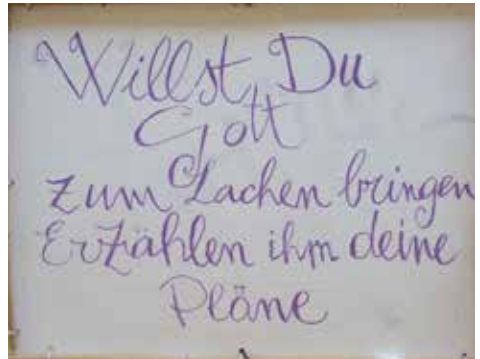 Willst Du
Gott
zum Lachen bringen
Erzählen ihm deine
Pläne